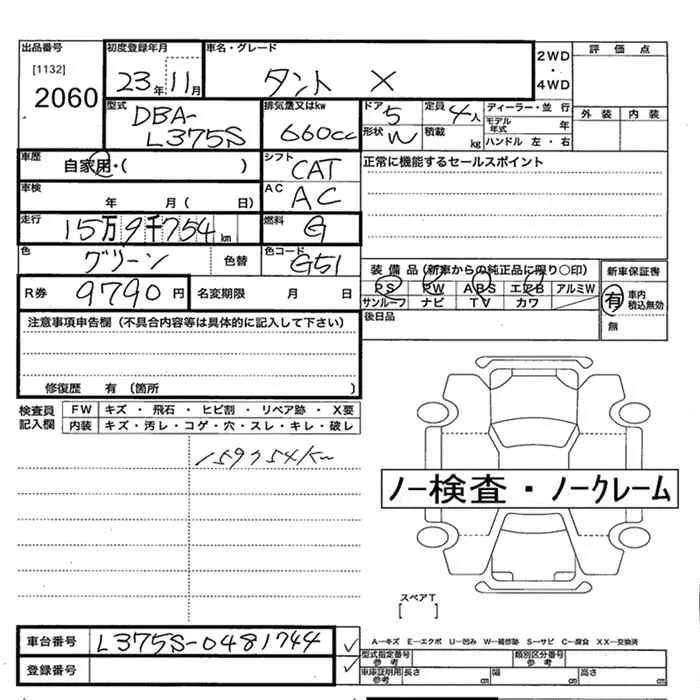 出品番号 初度登録年月 車名・グレード 評価点
[1132] 2060 23年11月 タント X 2WD・4WD
外装 内装
型式 DBA-L375S 排気量又はkw 660cc ドア 5 定員 4人 ディーラー・並行
形状 W 積載 kg モデル年式 年
ハンドル 左・右
車歴 自家用・( ) シフト CAT 正常に機能するセールスポイント
車検 年 月( 日) AC AC
走行 15万9千754km 燃料 G
色 グリーン 色替 色コード G51
装備品(新車からの純正品に限り○印) 新車保証書
R券 9790円 名変期限 月 日
PS PW ABS エアB アルミW 有 車内積込無効
サンルーフ ナビ TV カワ 無
注意事項申告欄(不具合内容等は具体的に記入して下さい) 後日品
修復歴 有(箇所 )
検査員記入欄 FW キズ・飛石・ヒビ割・リペア跡・X要
内装 キズ・汚レ・コゲ・穴・スレ・キレ・破レ
159754km
ノー検査・ノークレーム
スペアT
[ ]
車台番号 L375S-0481744
A―キズ E―エクボ U―凹み W―補修跡 S―サビ C―腐食 XX―交換済
登録番号 型式指定番号 参考 類別区分番号 参考
車庫証明用参考 長さ cm 幅 cm 高さ cm